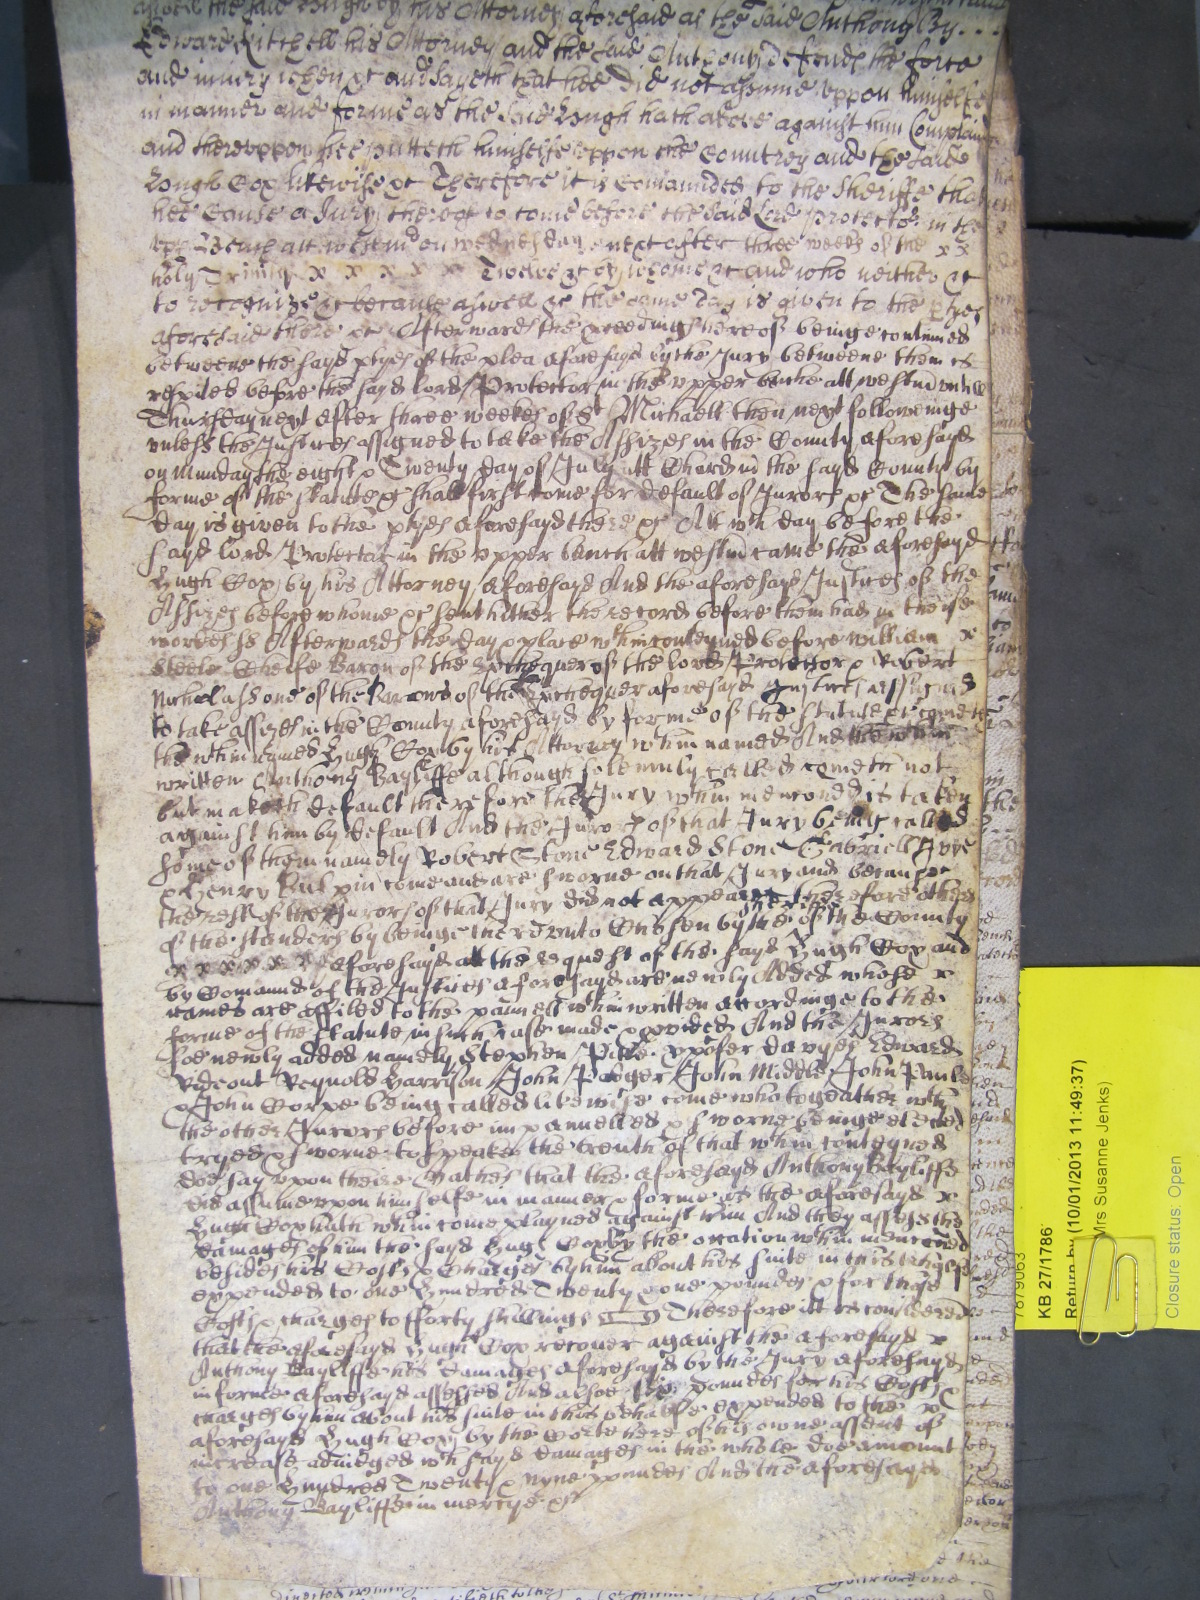 aswell the said Hugh by his Attorney aforesaid as the said Anthony By
Edward Mitchell his Attorney and the said Anthony defends the force
and iniury when &c and sayeth that hee did not assume uppon himselfe
in manner and forme as the said Hugh hath above against him Complain
and thereuppon hee putteth himselfe uppon the Countrey and the said
Hugh Cox likewise &c Therefore it is Comaunded to the Sheriffe that
hee Cause a Jury thereof to come before the said Lord Protector in the
upp Bench att westm on wednesday next after three weeks of the x x
holy Trinity x x x x x Twelve &c by whome &c and who neither &c
to recognize &c because aswell &c the same day is given to the ptyes
aforesaid there &c Afterwards the proceedings hereof beinge continued
betweene the sayd ptyes of the plea aforesayd by the Jury betweene them is
respited before the sayd lord Protector in the upper benche att westm untill
Thursday next after three weekes of St Michaell then next followeinge
unless the Justices assigned to take the Assizes in the County aforesayd
on munday the eight & Twenty day of July att Chard in the sayd County by
forme of the statute &c shall first come for default of Jurors &c The same
day is given to the ptyes aforesayd there &c Att wch day before the
sayd lord Protector in the upper bench att westm came the aforesayd
Hugh Cox by his Attorney aforesayd And the aforesayd Justices of the
Assizes before whome &c sent hither the record before them had in these
wordes ss Afterwards the day & place wthin conteyned before william x
Steele Cheife Baron of the Exchequer of the lord Protector & Robert
Nicholas one of the Barons of the Exchequer aforesayd Justices assigned
to take assizes in the County aforesayd by forme of the statute &c cometh
the wthin named Hugh Cox by his Attorney wthin named And the wthin
written Anthony Bayliffe although solemnly called cometh not
but maketh default therefore the Jury wthin menconed is taken
against him by default And the Jurors of that Jury being called
some of them namely Robert Stone Edward Stone Gabriell Ivye
& Henry come and are sworne on that Jury and because
the rest of the Jurors of that Jury did not appeare therefore others
of the standers by beinge thereunto Chosen by the sheriffe of the County
x x x x x x aforesayd att the request of the sayd Hugh Cox and
by Comaund of the Justices aforesayd are newly Added whose x
names are affiled to the pannell wthin written accordinge to the
forme of the statute in such case made & pvided And the Jurors
soe newly added namely Stephen Pitte davyes Edward
Rideout Reynold Harrison John John Middle John Paule
& John Corpe being called likewise come who togeather with
the other Jurors before impannelled & sworne beinge elected
tryed & sworne to speake the truth of that wthin conteyned
doe say upon theire Oathes that the aforesayd Anthony Bayliffe
did assume upon himselfe in manner & forme as the aforesayd x
Hugh Cox hath wthin complayned against him And they assess the
damages of him the sayd Hugh Cox by the occation wthin menconed
besides his Costs & Charges by him about his suite in this behalfe
expended to one Hundred Twenty & one poundes & for those
Costs & charges to fforty shillings Therefore itt is considered
that the aforesayd Hugh Cox recover against the aforesayd x
Anthony Bayliffe his damages aforesayd by the Jury aforesayd
in forme aforesayd assessed And alsoe six poundes for his Costs &
charges by him about his suite in this behalfe expended to the x
aforesayd Hugh Cox by the Corte here of his owne assent of
increase adiudged wch sayd damages in the whole doe amount
to one Hundred Twenty & nyne poundes And the aforesayd
Anthony Bayliffe in mercye &c
KB 27/1786
Return by (10/01/2013 11:49:37)
Mrs Susanne Jenks)
Closure status: Open